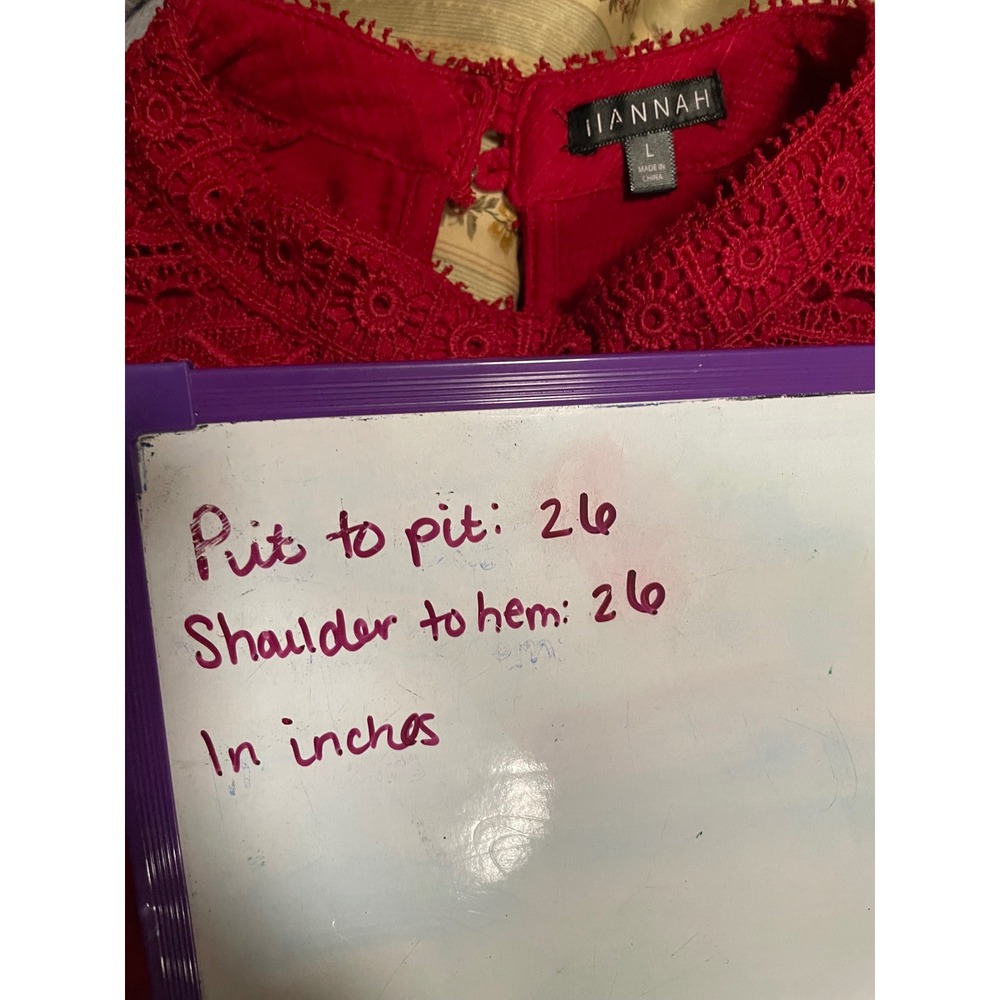 HANNAH
L
MADE IN
CHINA
Pit to pit: 26
Shoulder to hem: 26
In inches